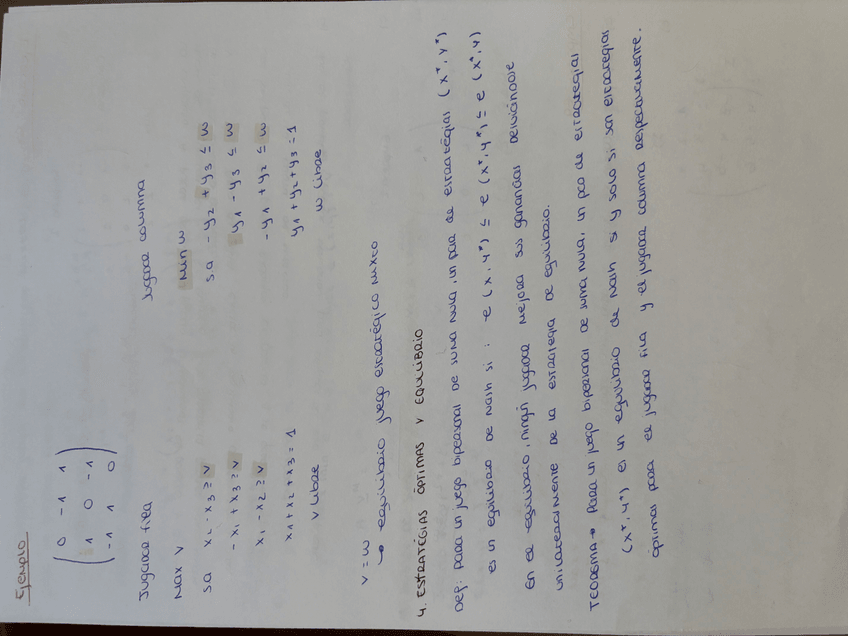 Ejemplo
0 -1 1
1 0 -1
-1 1 0
Jugador fila
Max v
s.a x2 - x3 ≥ v
- x1 + x3 ≥ v
x1 - x2 ≥ v
x1 + x2 + x3 = 1
v libre
Jugador columna
Min w
s.a - y2 + y3 ≤ w
y1 - y3 ≤ w
- y1 + y2 ≤ w
y1 + y2 + y3 = 1
w libre
v = w
↳ equilibrio juego estratégico mixto
4. ESTRATÉGIAS ÓPTIMAS Y EQUILIBRIO
Def: para un juego bipersonal de suma nula, un par de estratégias (x*, y*)
es un equilibrio de Nash si : e(x, y*) ≤ e(x*, y*) ≤ e(x*, y)
En el equilibrio, ningún jugador mejora sus ganancias desviándose
unilateralmente de la estrategia de equilibrio.
TEOREMA → Para un juego bipersonal de suma nula, un par de estrategias
(x*, y*) es un equilibrio de Nash si y solo si son estrategias
óptimas para el jugador fila y el jugador columna respectivamente.